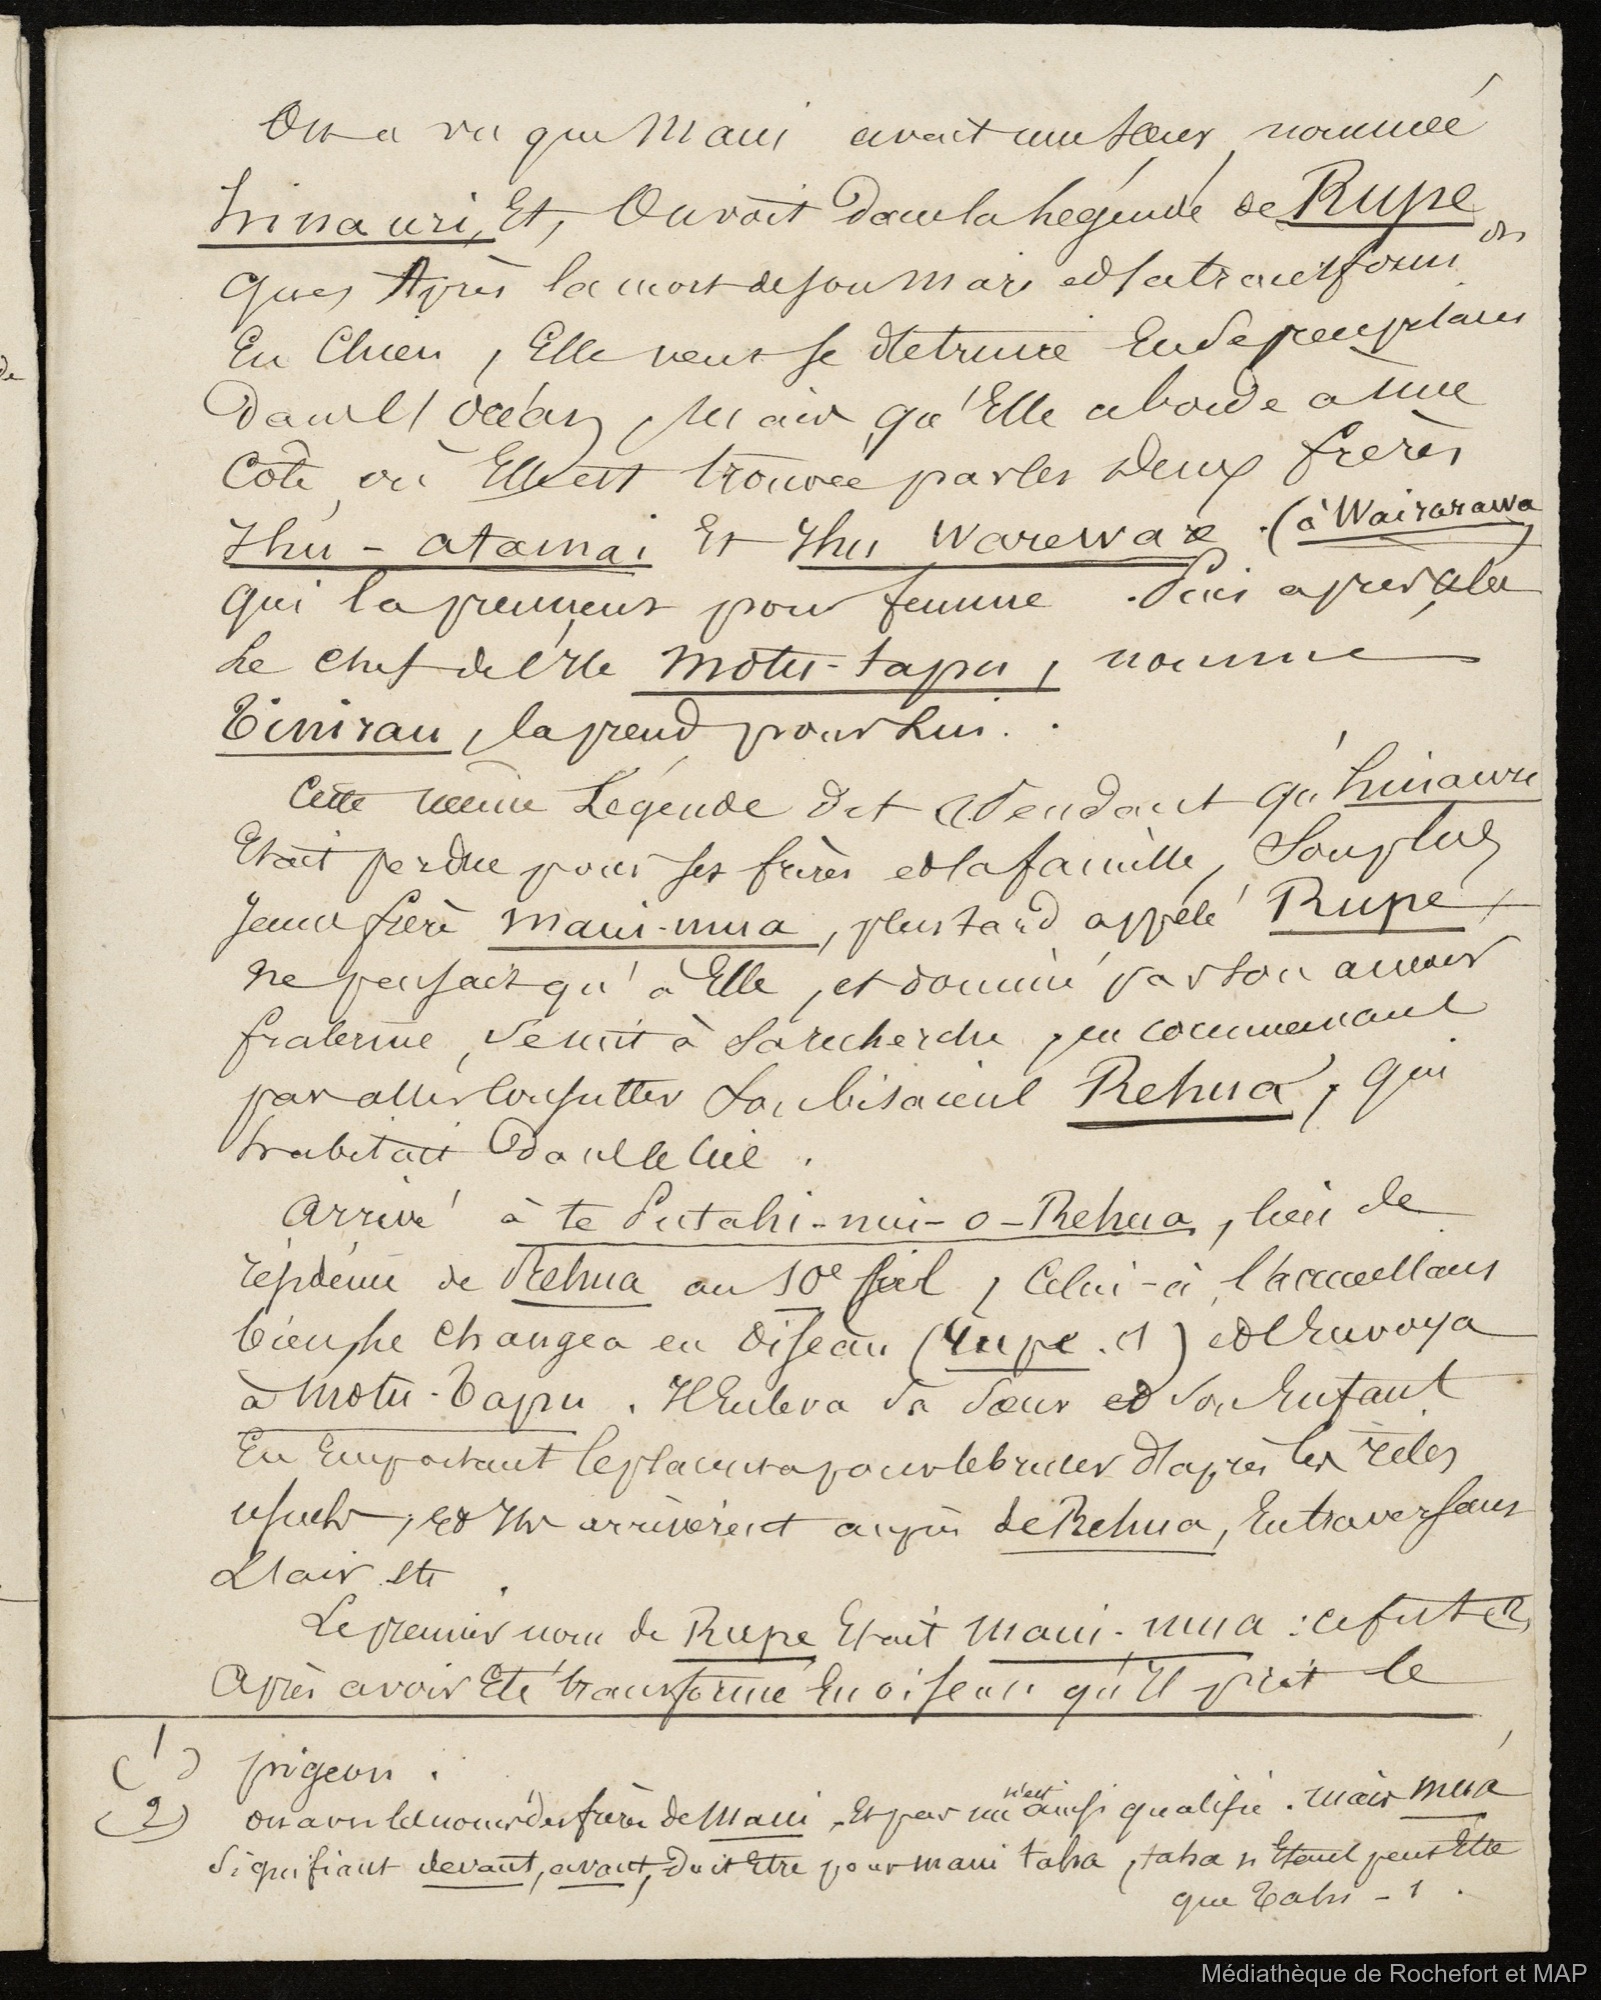 On a vu que Maui avait une Sœur, nommée
hinauri, Et, On voit dans la Légende de Rupe
que, Après la mort de son mari et sa transform on
En Chien, Elle veut se détruire En se
dans l'océan, Mais qu'Elle aborde à une
Côte, où Elle est trouvée par les deux frères
Ihu - atamai Et Ihu Wareware. (à Wairarawa)
qui la prennent pour femme. Puis après cela
Le chef de l'Ile Motu-tapu, nommé
Tinirau, la prend pour Lui.
Cette même Légende dit Pendant qu'hinauri
Etait perdue pour ses frères et sa famille, Son plus
jeune frère Maui-mua, plus tard appelé Rupe,
ne pensait qu'à Elle, et dominé par son amour
fraternel, se mit à sa recherche, en commencant
par aller Consulter Son bisaieul Rehua, qui
habitait dans le Ciel.
Arrivé à te Putahi-nui-o-Rehua, lieu de
résidence de Rehua au 10e Ciel, Celui-ci l'accueillant
bien, le changea en Oiseau (rupe. 1) et l'Envoya
à Motu-Tapu. Il Enleva sa sœur et son Enfant
En Emportant le placenta pour le brûler d'après les rites
usuels, et Ils arrivèrent auprès de Rehua, En traversant
L'air etc.
Le premier nom de Rupe Etait Maui-mua : ce fut (2)
Après avoir Eté transformé En oiseau qu'Il prit le
(1) pigeon.
(2) on a vu les noms des frères de Maui, Et pas un n'est ainsi qualifié. Mais mua
Signifiant devant, avant, doit Etre pour maui taha, taha n'étant peut Etre
que Tahi - 1.